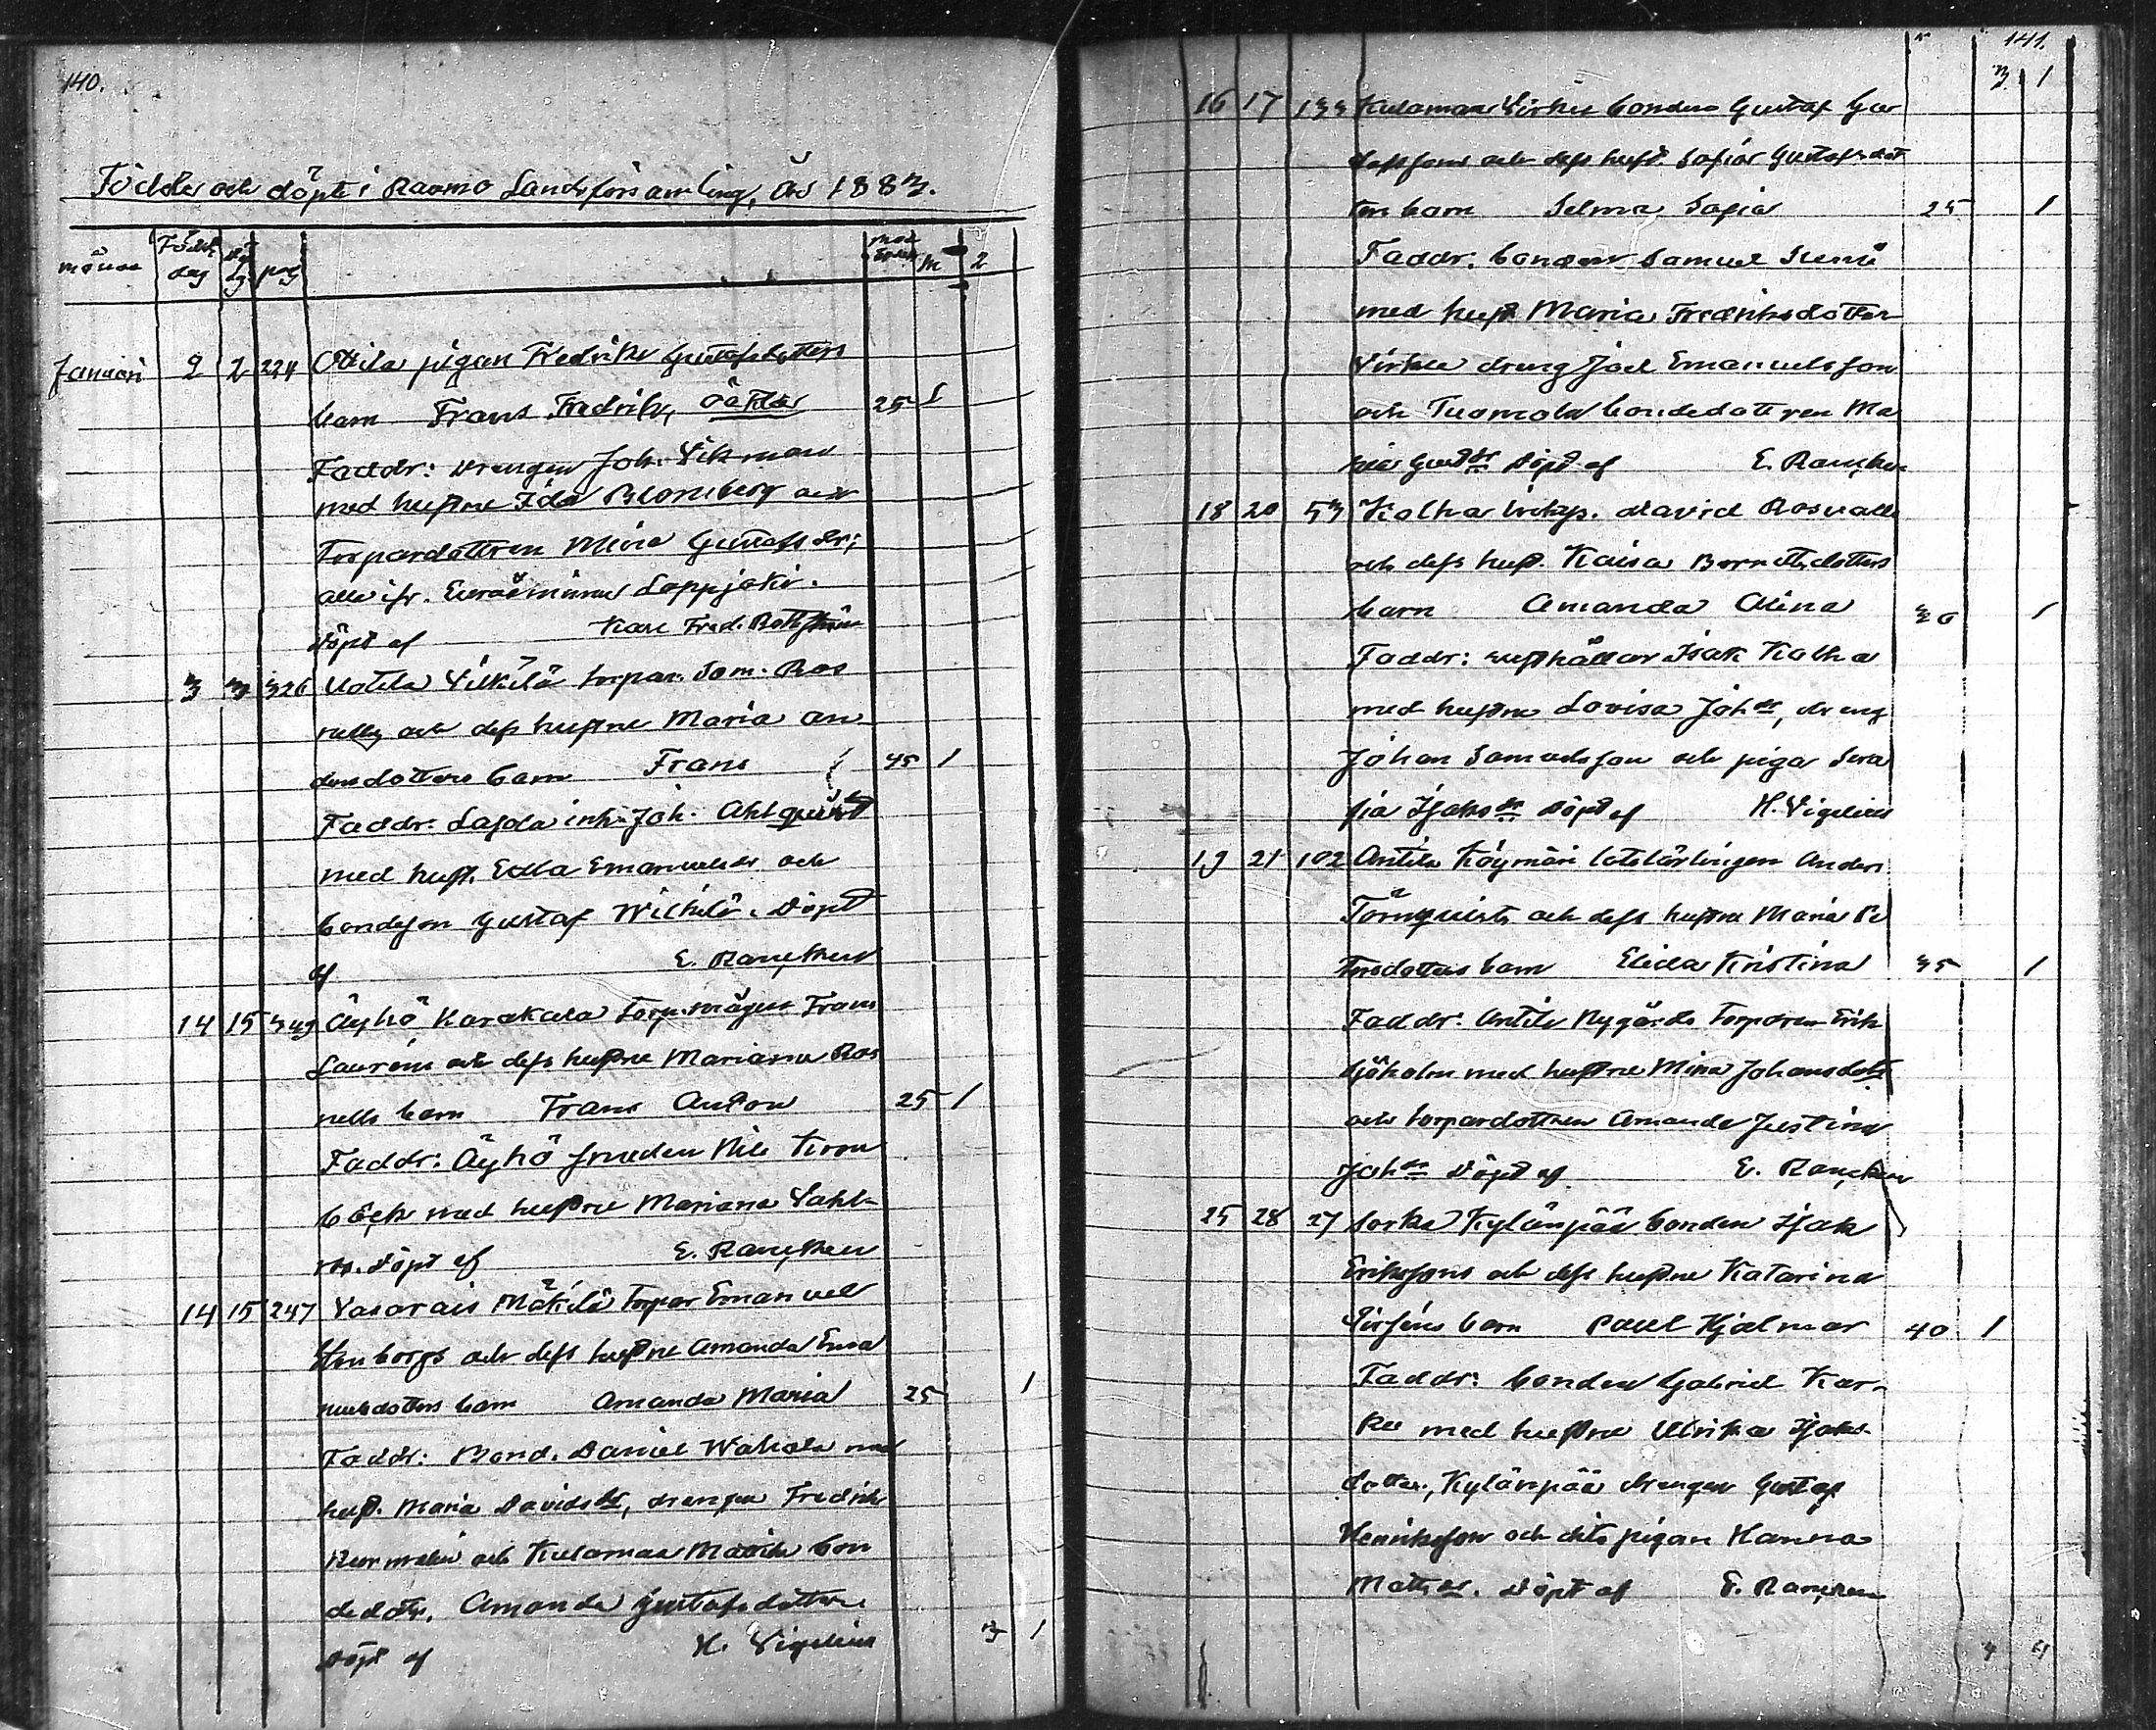 140.
Födde och döpte i Raumo Landsförsamling, år 1883.
månad Född dag döp dg pag mod m 2
Januari 2 2 224 Ottila pigan Fredrika Gustafsdotters
barn Frans Fredrik, oäkta 25 1
Faddr: drengen Joh. Vikman
med hustrue Ida Blomberg och
Torpardottren Mina Gustafs dr;
alle ifr. Euraåminne Lappjoki.
Döpt af Karl Fred.
3 3 326 Uotila Vilkilä torpar. Sam. Ros
nells och dess hustrue Maria An
dersdotters barn Frans 45 1
Faddr. Lajola inh. Joh. Ahlquist
med hust. Edla Emanuelsdr och
bondeson Gustaf Wilkilä. Döpt
af E. Rancken
14 15 349 Äyhö Karakala Torp.mågen Frans
Lauréns och dess hustrue Mariana Ros
nells barn Frans Anton 25 1
Faddr: Äyhö smeden Nils Kron
bäck med hustrue Mariana Sahl-
ros. Döpt af E. Rancken
14 15 247 Vasarais Mäkilä torpar Emanuel
Stenborgs och dess hustrue Amanda Ema
nuelsdotters barn Amanda Maria 25 1
Faddr: Bond. Daniel Wahala med
hust. Maria Davidsdr, drengen Fredrik
Nurmela och Kulamaa Mattila bon
dedotr. Amanda Gustafsdotter
Döpt af H. Vigelius 3 1
141.
3 1
16 17 133 Kulamaa Sirku bonden Gustaf Gus
tafssons och dess hust. Sofia Gustafsdot
ters barn Selma Sofia 25 1
Faddr: bonden Samuel Suni
med hust Maria Fredriksdotter
Sirkka dreng Joel Emanuelsson
och Tuomola bondedottren Ma
ria Gustdr Döpt af E. Rancken
18 20 53 Kolha inhys. David Rosvalls
och dess hust. Kaisa Berndtsdotters
barn Amanda Alina 36 1
Faddr: rusthållar Isak Kolha
med hustrue Lovisa Johdr, dreng
Johan Samuelsson och piga Sera
fia Isaksdr Döpt af H. Vigelius
19 21 102 Antila Köymäri lotslärlingen Anders
Törnquists och dess hustrue Maria Pe
tersdotters barn Elida Kristina 35 1
Faddr: Antila Nygårds torparen Erik
Sjöholm med hustrue Mina Johansdotr
och torpardottren Amanda Justina
Johdr Döpt af E. Rancken
25 28 27 Sorka Kylänpää bonden Isak
Erikssons och dess hustrue Katarina
barn Paul Hjalmar 40 1
Faddr: bonden Gabriel Kar-
ku med hustrue Ulrika Isaks-
dotter, Kylänpää drengen Gustaf
Henriksson och dito pigan Hanna
Mattsdr. Döpt af E. Rancken
4 4